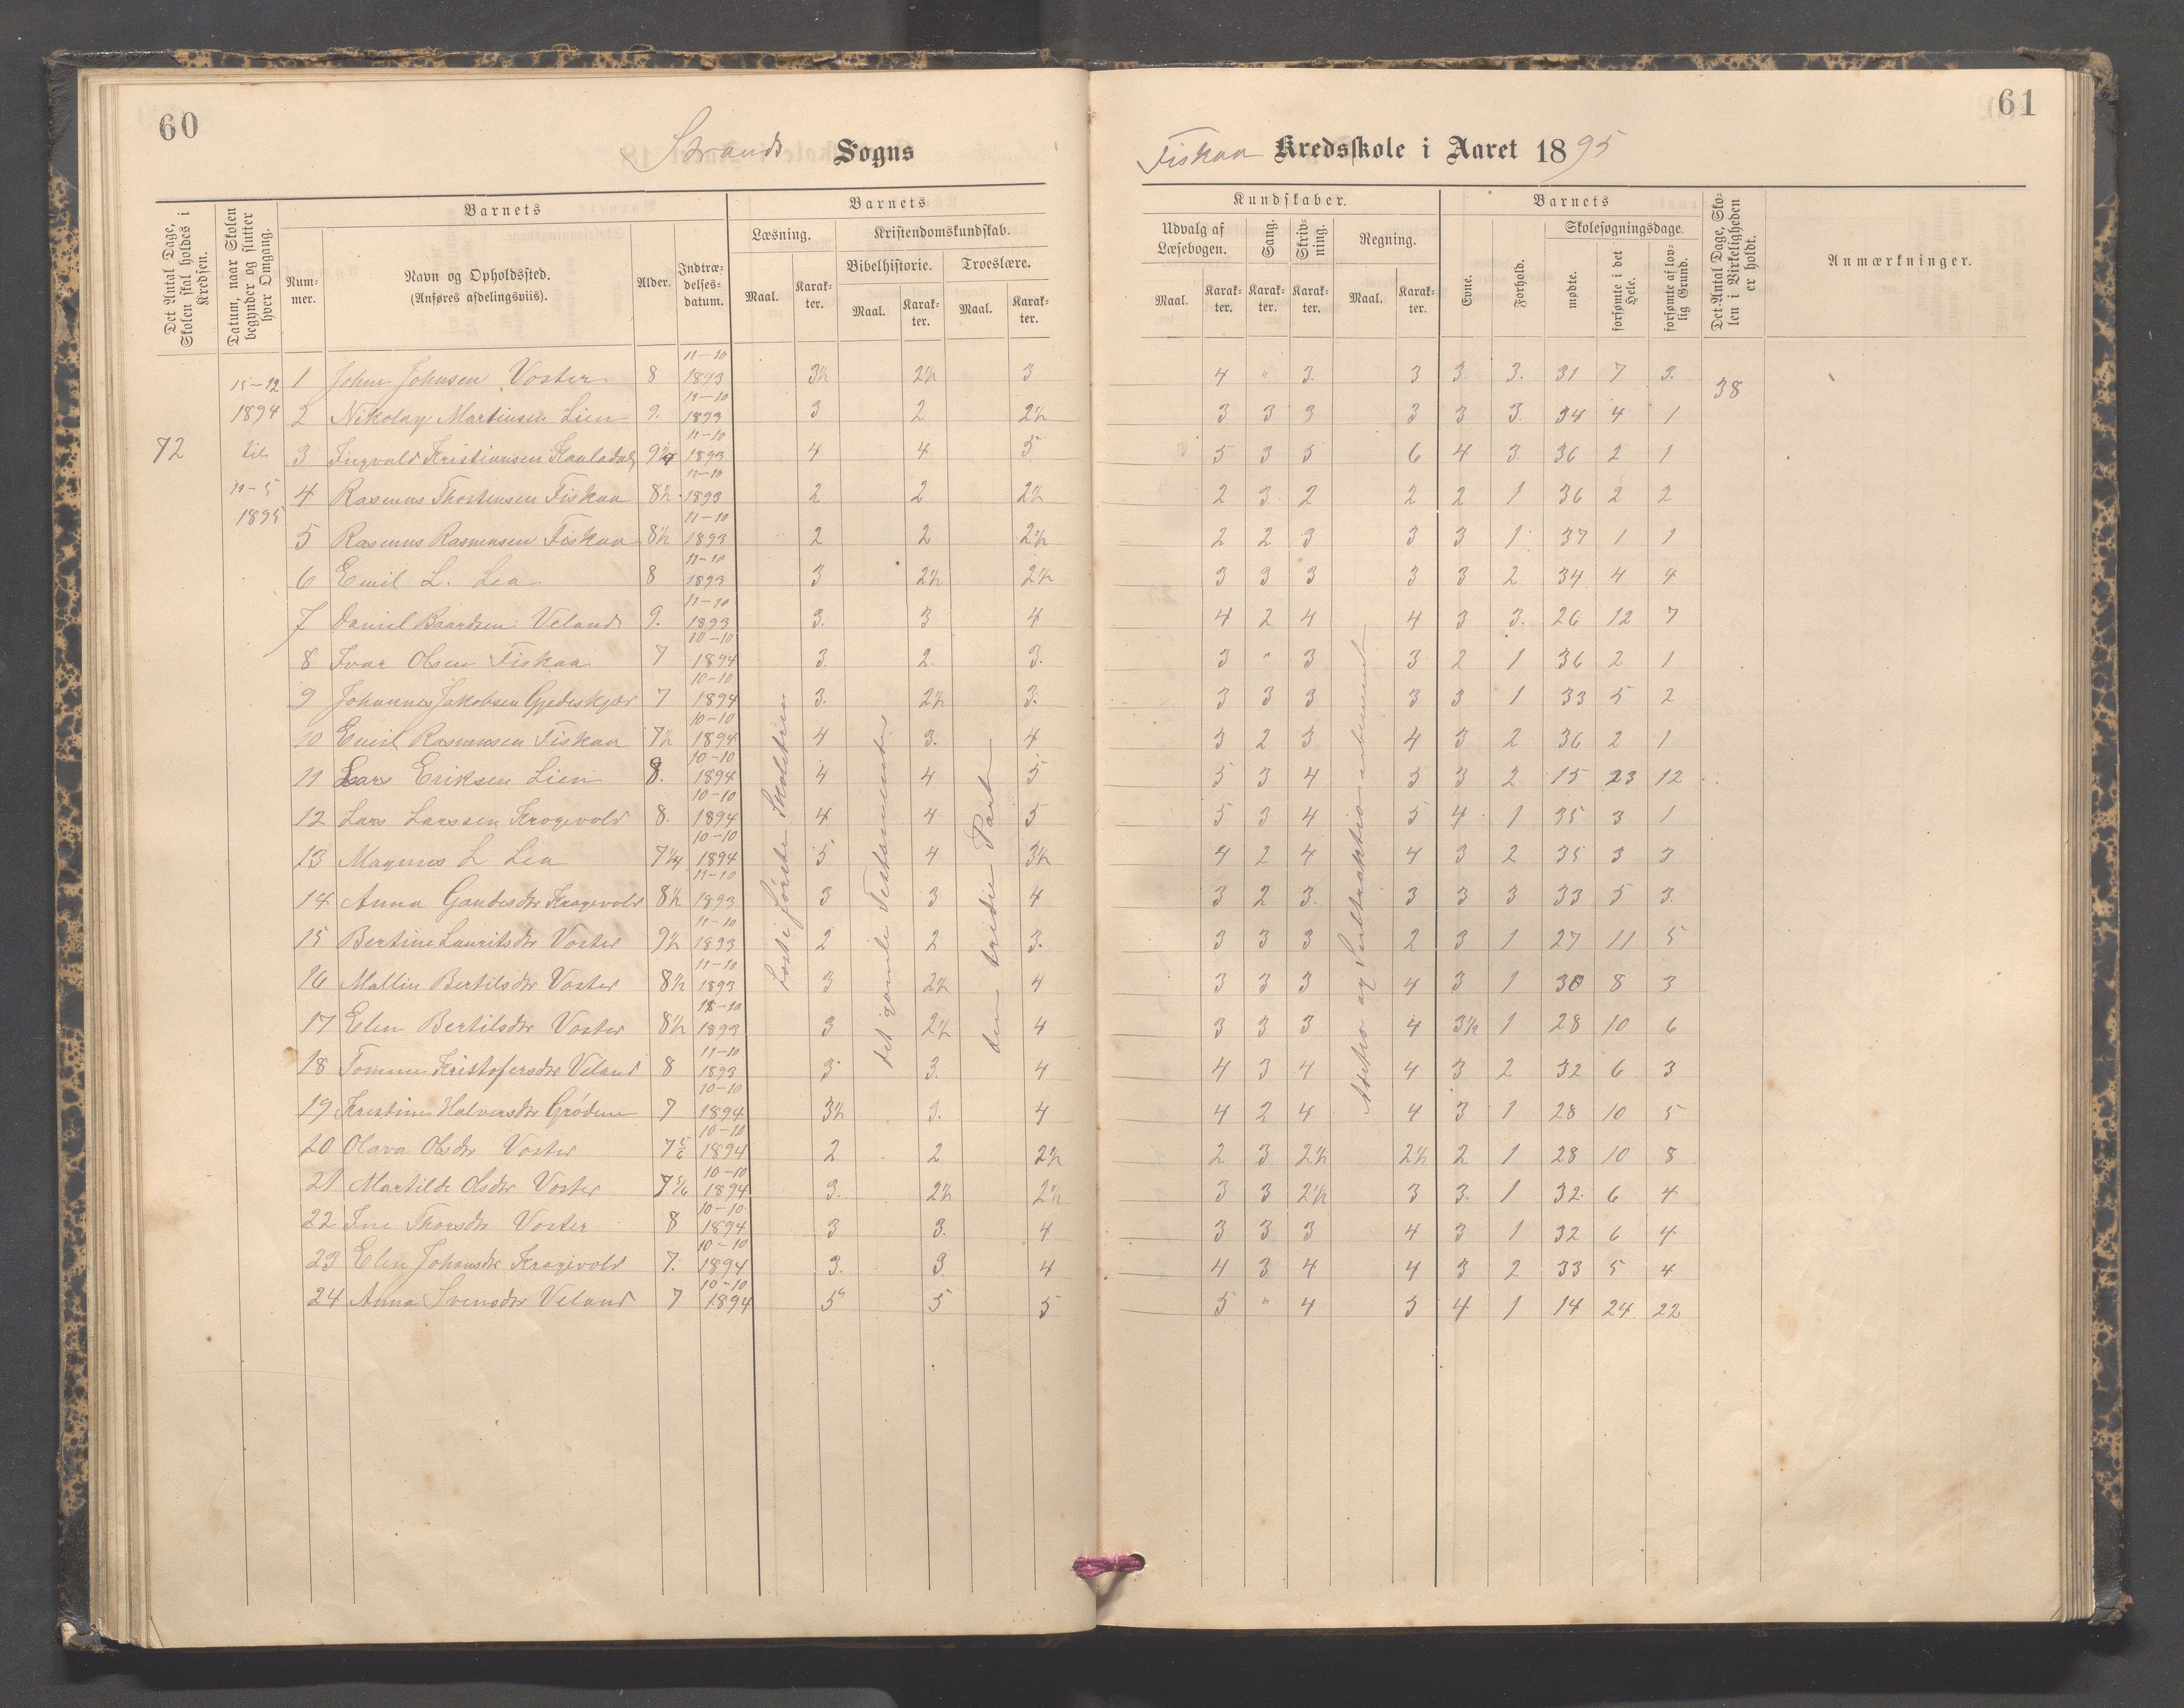 60
61
Strands Sogns
Fiskaa Kredsskole i Aaret 1895
Det Antal Dage, Skolen skal holdes i Kredsen.
Datum, naar Skolen begynder og slutter hver Omgang.
Barnets
Nummer.
Navn og Opholdssted.
(Anføres afdelingsviis).
Alder.
Indtrædelsesdatum.
Barnets
Læsning.
Kristendomskundskab.
Bibelhistorie.
Troeslære.
Maal.
Karakter.
Maal.
Karakter.
Maal.
Karakter.
Kundskaber.
Udvalg af Læsebogen.
Sang.
Skrivning.
Regning.
Maal.
Karakter.
Karakter.
Karakter.
Maal.
Karakter.
Barnets
Evne.
Forhold.
Skolesøgningsdage.
mødte.
forsømte i det Hele.
forsømte af lovlig Grund.
Det Antal Dage, Skolen i Virkeligheden er holdt.
Anmærkninger.
72
15-12
1894
til
11-5
1895
38
1 John Johnsen Voster 8 11-10 1893 3½ 2½ 3 4 " 3. 3 3. 3. 31 7 3.
2 Nikolay Martinsen Lien 9. 11-10 1893 3 2 2½ 3 3 3 3 3 3. 34 4 1
3 Ingvald Kristiansen 9¼ 11-10 1893 4 4 5 5 3 5 6 4 3. 36 2 1
4 Rasmus Thorstensen Fiskaa 8½ 11-10 1893 2 2 2½ 2 3 2 2 2 1 36 2 2
5 Rasmus Rasmusen Fiskaa 8½ 11-10 1893 2 2 2½ 2 2 3 3 3 1 37 1 1
6 Emil L. Lea 8 11-10 1893 3 2½ 2½ 3 3 3 3 3 2 34 4 4
7 Daniel Baardsen Veland 9. 11-10 1893 3. 3 4 4 2 4 4 3 3. 26 12 7
8 Ivar Olsen Fiskaa 7 10-10 1894 3. 2. 3. 3 " 3 3 2 1 36 2 1
9 Johannes Jakobsen Gjedeskjær 7 10-10 1894 3. 2½ 3. 3 3 3 3 3 1 33 5 2
10 Emil Rasmusen Fiskaa 7½ 10-10 1894 4 3. 4 3 2 3 4 3 2 36 2 1
11 Lars Eriksen Lien 8. 10-10 1894 4 4 5 5 3 4 5 3 2 15 23 12
12 Lars Larssen Krogevold 8. 10-10 1894 4 4 5 5 3 4 5 4 1 35 3 1
13 Magnus L Lea 7¼ 10-10 1894 5 4 3½ 4 2 4 4 3 2 35 3 3
14 Anna Gaudesdtr Krogevold 8½ 11-10 1893 3 3 4 3 2 3. 3 3 3 33 5 3.
15 Bertine Lauritsdtr Voster 9½ 11-10 1893 2 2 3. 3 3 3 2 3 1 27 11 5
16 Mallin Bertilsdtr Voster 8½ 11-10 1893 3 2½ 4 3 3 3 4 3 1 30 8 3
17 Elen Bertilsdtr Voster 8½ 11-10 1893 3 2½ 4 3 3 3 4 3½ 1 28 10 6
18 Tomine Kristofersdtr Veland 8 11-10 1893 3 3. 4 4 3 4 4 3 2 32 6 3
19 Kristine Halversdtr Grødem 7 10-10 1894. 3½ 3. 4 4 2 4 4 3 1 28 10 5
20 Olava Olsdtr Voster 7 5/6 10-10 1894 2 2 2½ 2 3 2½ 2½ 2 1 28 10 8
21 Martilde Olsdtr Voster 7 5/6 10-10 1894 3. 2½ 2½ 3 3 2½ 3 3. 1 32 6 4
22 Ine Thorsdtr Voster 8 10-10 1894 3 3. 4 3 3 3 4 3 1 32 6 4
23 Elen Johansdtr Krogevold 7. 10-10 1894 3. 3. 4 4 3 4 4 3 2 33 5 4
24 Anna Svensdtr Veland 7 10-10 1894 5 5 5 5 " 4 5 4 1 14 24 22
første Skoletrin
det gamle Testamente
den tredie Part
Additio og Subtraktio